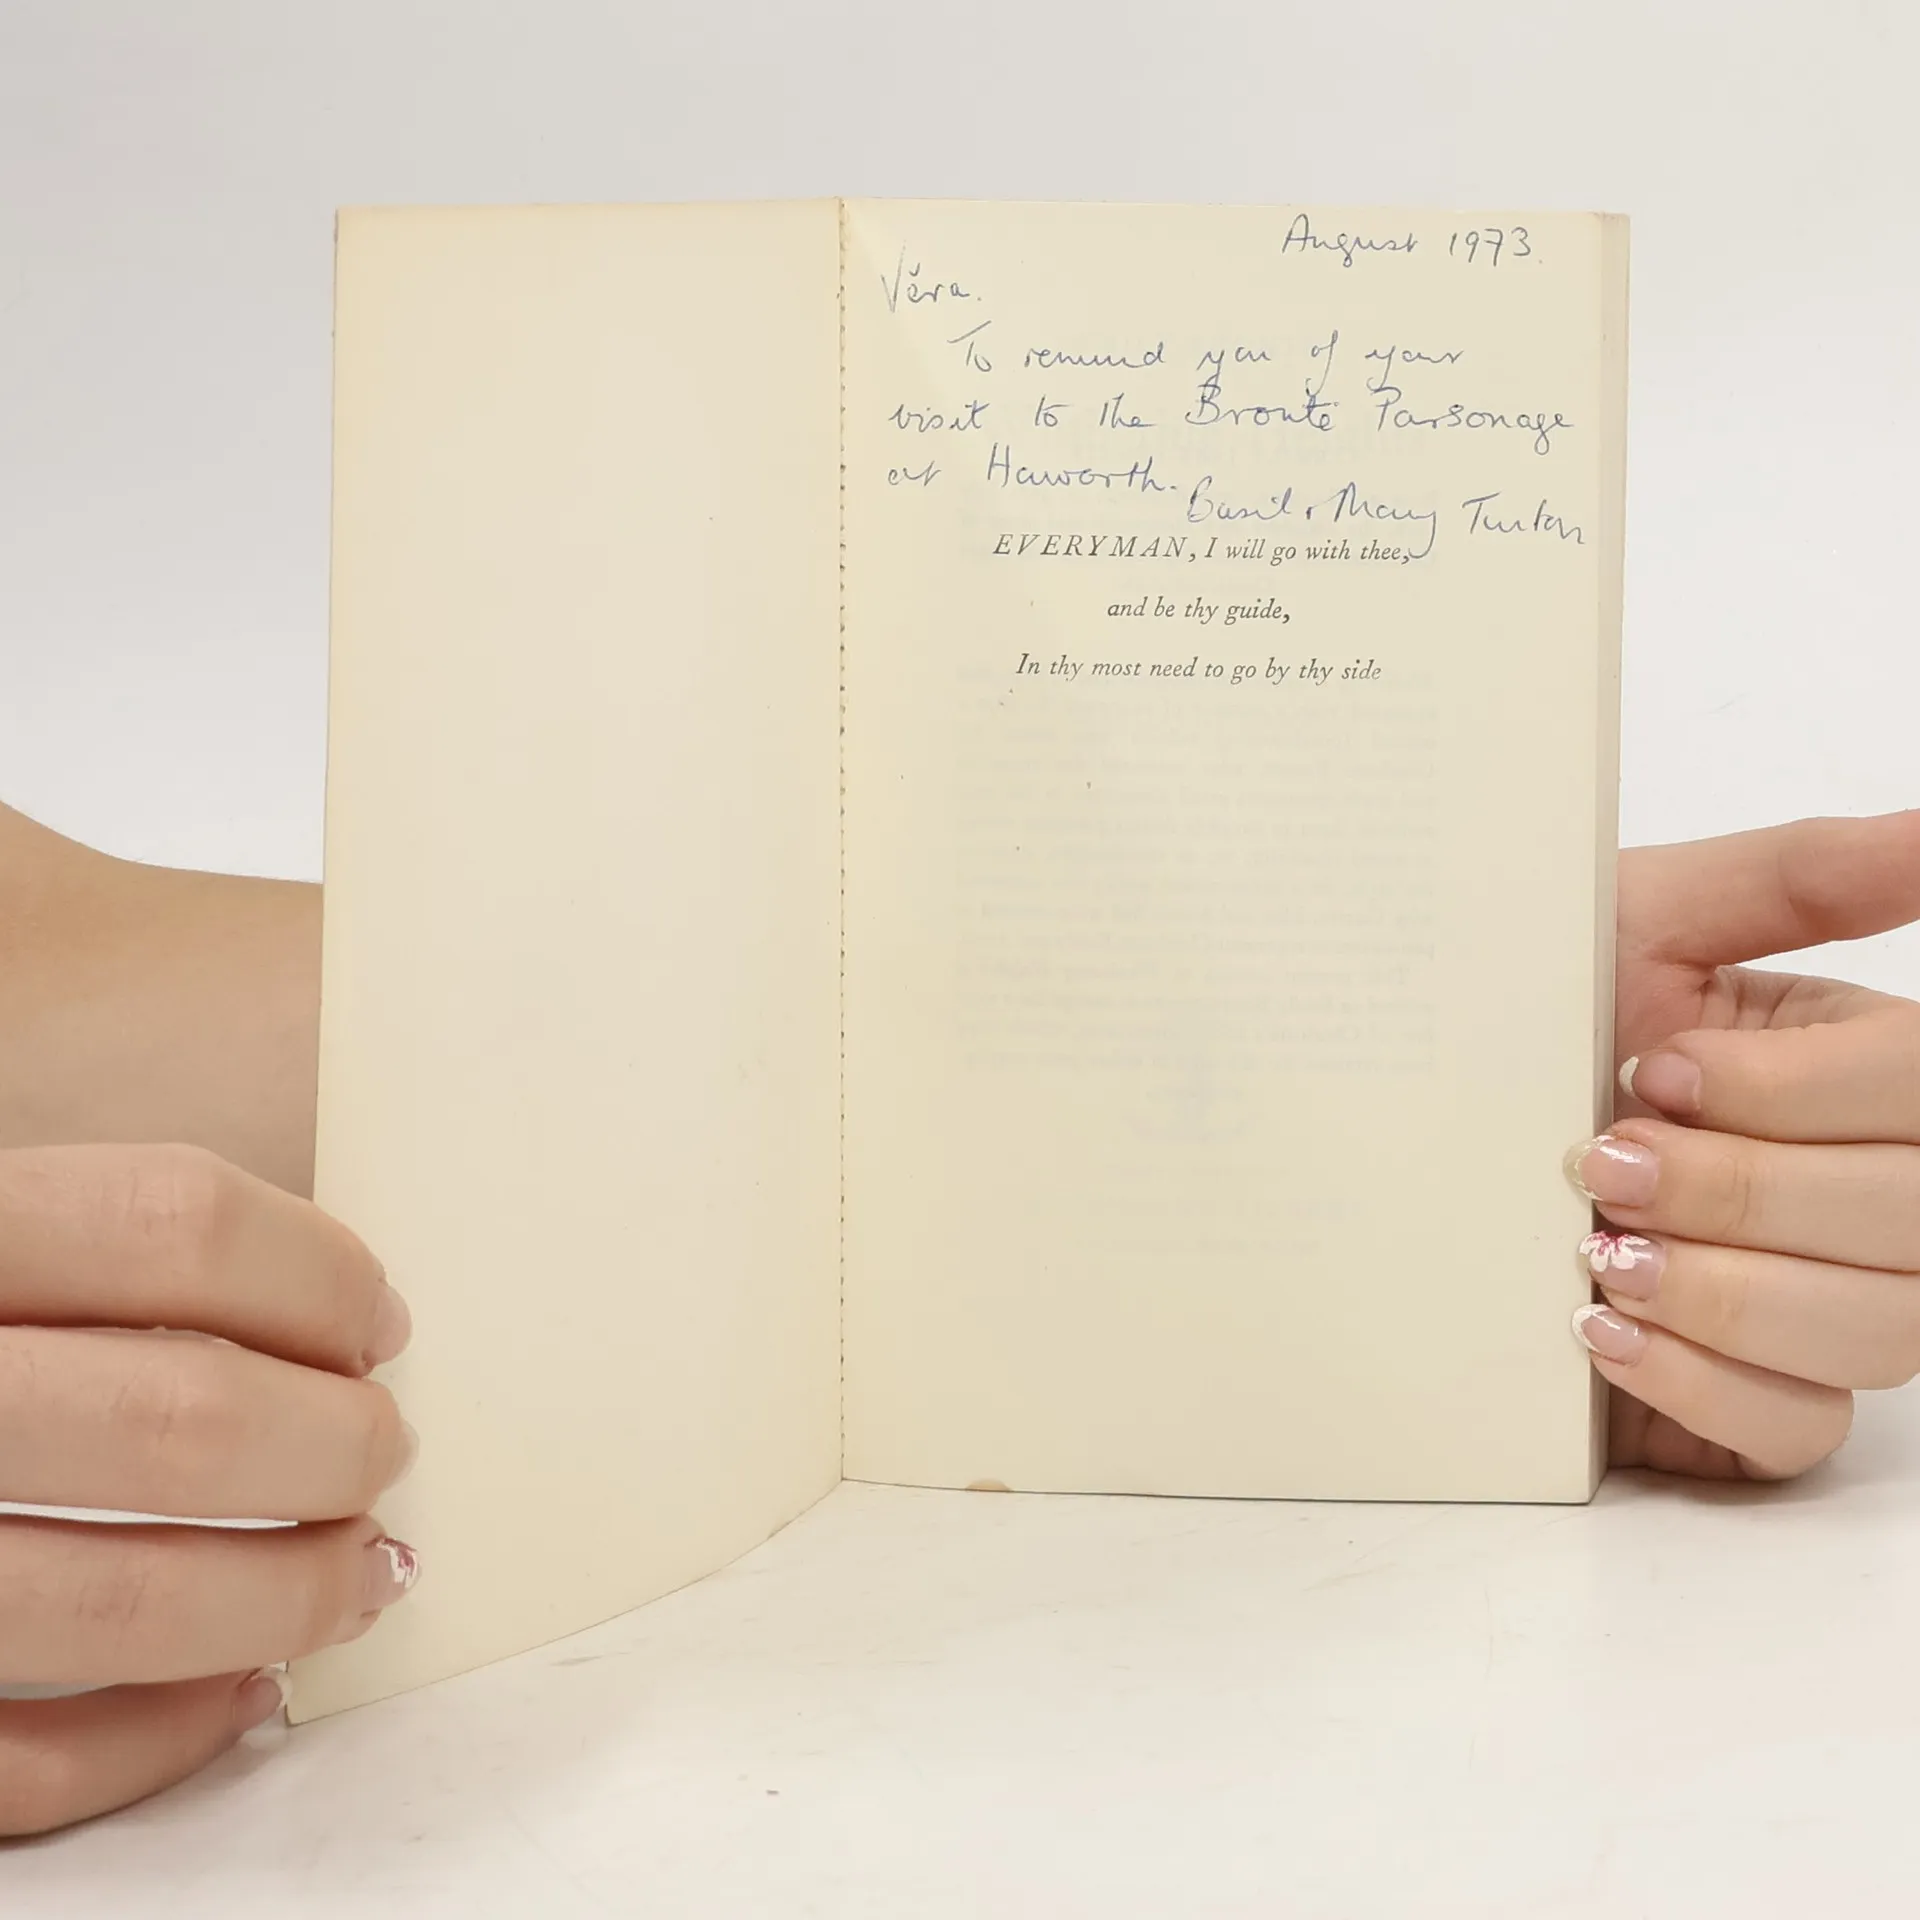 August 1973.
Věra.
To remind you of your
visit to the Brontë Parsonage
at Haworth.
Basil & Mary Turton
EVERYMAN, I will go with thee,
and be thy guide,
In thy most need to go by thy side